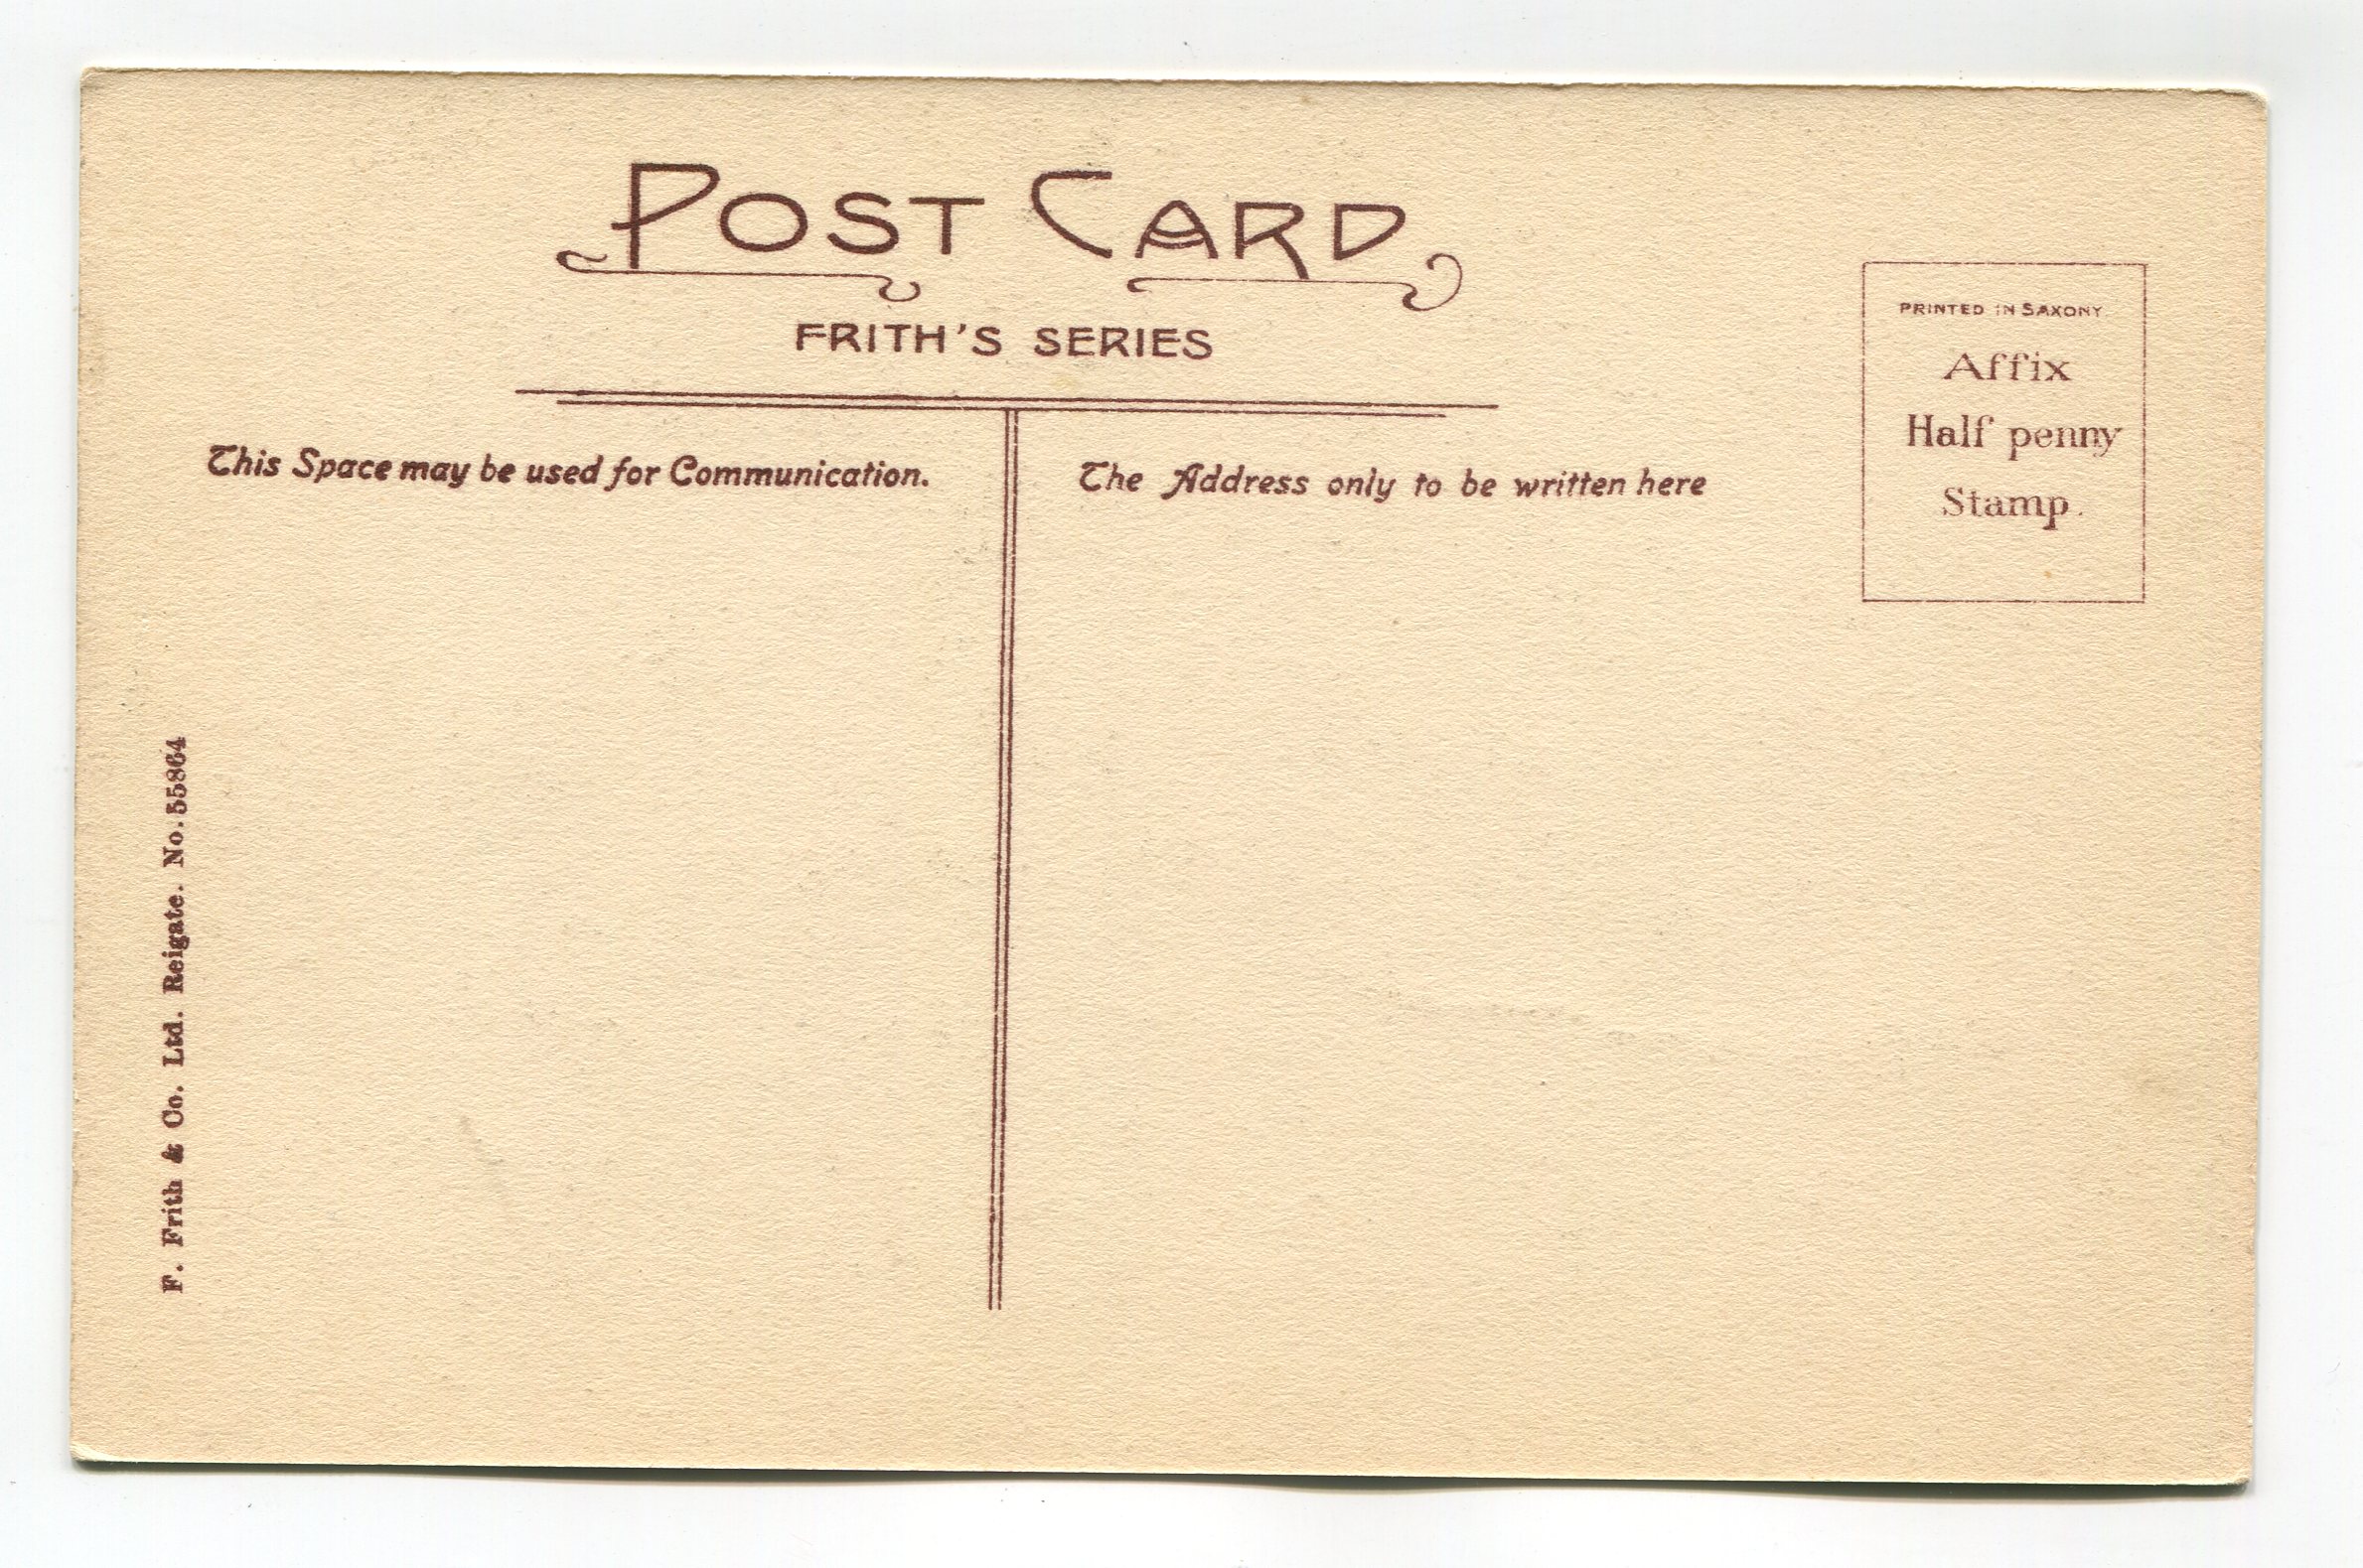 POST CARD
FRITH'S SERIES
PRINTED IN SAXONY
Affix
Half penny
Stamp.
This Space may be used for Communication.
The Address only to be written here
F. Frith & Co. Ltd. Reigate. No. 55864